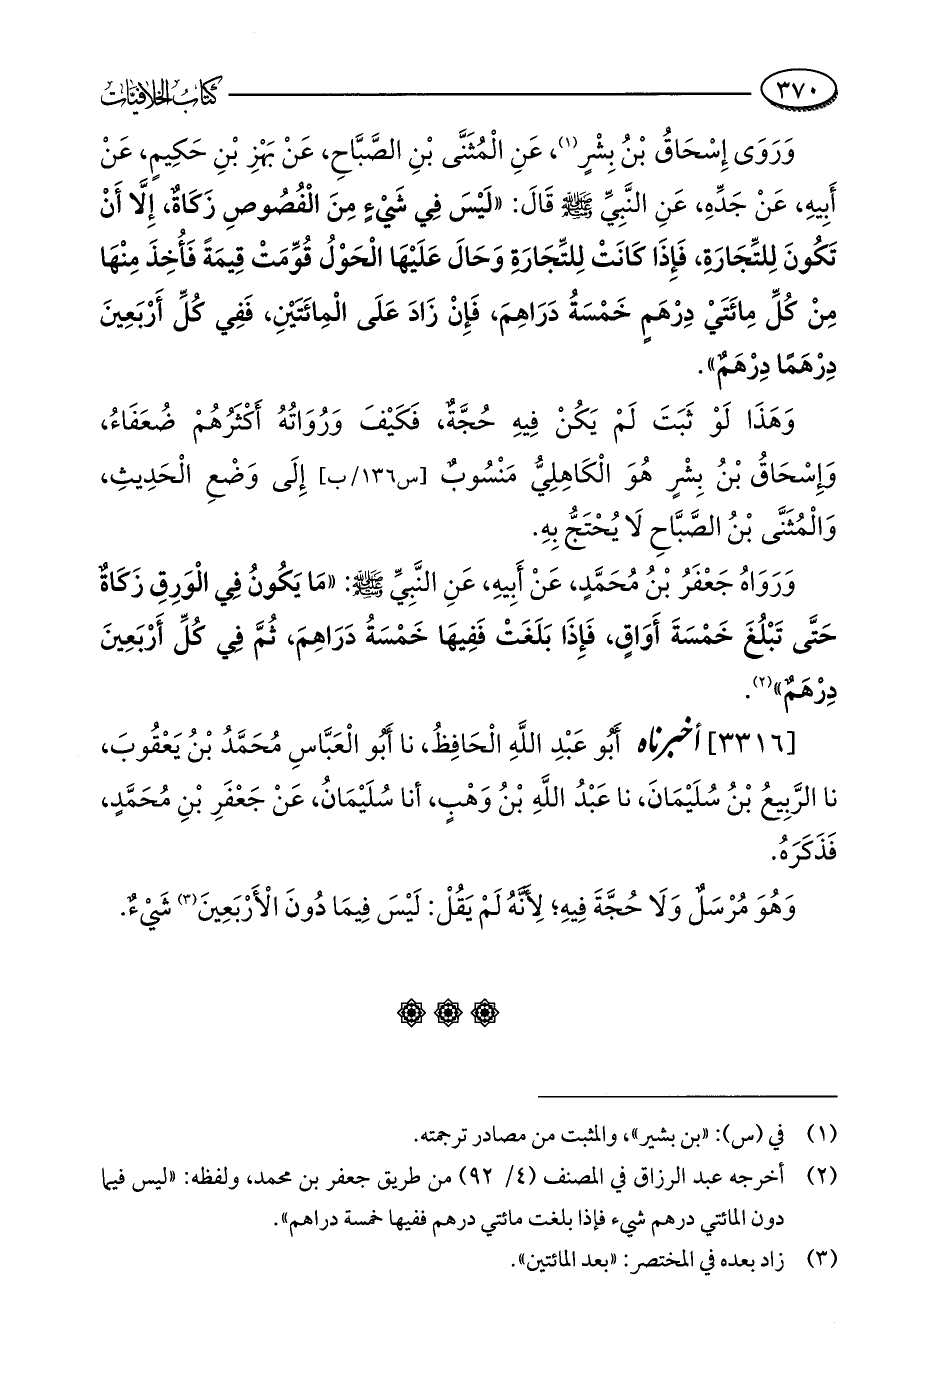 ٣٧٠ كتاب الخلافيات
وَرَوَى إِسْحَاقُ بْنُ بِشْرٍ(١)، عَنِ الْمُثَنَّى بْنِ الصَّبَّاحِ، عَنْ بَهْزِ بْنِ حَكِيمٍ، عَنْ
أَبِيهِ، عَنْ جَدِّهِ، عَنِ النَّبِيِّ ﷺ قَالَ: «لَيْسَ فِي شَيْءٍ مِنَ الْفُصُوصِ زَكَاةٌ، إِلَّا أَنْ
تَكُونَ لِلتِّجَارَةِ، فَإِذَا كَانَتْ لِلتِّجَارَةِ وَحَالَ عَلَيْهَا الْحَوْلُ قُوِّمَتْ قِيمَةً فَأُخِذَ مِنْهَا
مِنْ كُلِّ مِائَتَيْ دِرْهَمٍ خَمْسَةُ دَرَاهِمَ، فَإِنْ زَادَ عَلَى الْمِائَتَيْنِ، فَفِي كُلِّ أَرْبَعِينَ
دِرْهَمًا دِرْهَمٌ».
وَهَذَا لَوْ ثَبَتَ لَمْ يَكُنْ فِيهِ حُجَّةٌ، فَكَيْفَ وَرُوَاتُهُ أَكْثَرُهُمْ ضُعَفَاءُ،
وَإِسْحَاقُ بْنُ بِشْرٍ هُوَ الْكَاهِلِيُّ مَنْسُوبٌ [س١٣٦/ب] إِلَى وَضْعِ الْحَدِيثِ،
وَالْمُثَنَّى بْنُ الصَّبَّاحِ لَا يُحْتَجُّ بِهِ.
وَرَوَاهُ جَعْفَرُ بْنُ مُحَمَّدٍ، عَنْ أَبِيهِ، عَنِ النَّبِيِّ ﷺ: «مَا يَكُونُ فِي الْوَرِقِ زَكَاةٌ
حَتَّى تَبْلُغَ خَمْسَةَ أَوَاقٍ، فَإِذَا بَلَغَتْ فَفِيهَا خَمْسَةُ دَرَاهِمَ، ثُمَّ فِي كُلِّ أَرْبَعِينَ
دِرْهَمٌ»(٢).
[٣٣١٦] أخبرناه أَبُو عَبْدِ اللَّهِ الْحَافِظُ، نا أَبُو الْعَبَّاسِ مُحَمَّدُ بْنُ يَعْقُوبَ،
نا الرَّبِيعُ بْنُ سُلَيْمَانَ، نا عَبْدُ اللَّهِ بْنُ وَهْبٍ، أنا سُلَيْمَانُ، عَنْ جَعْفَرِ بْنِ مُحَمَّدٍ،
فَذَكَرَهُ.
وَهُوَ مُرْسَلٌ وَلَا حُجَّةَ فِيهِ؛ لِأَنَّهُ لَمْ يَقُلْ: لَيْسَ فِيمَا دُونَ الْأَرْبَعِينَ(٣) شَيْءٌ.
(١) في (س): «بن بشير»، والمثبت من مصادر ترجمته.
(٢) أخرجه عبد الرزاق في المصنف (٤/ ٩٢) من طريق جعفر بن محمد، ولفظه: «ليس فيما
دون المائتي درهم شيء فإذا بلغت مائتي درهم ففيها خمسة دراهم».
(٣) زاد بعده في المختصر: «بعد المائتين».